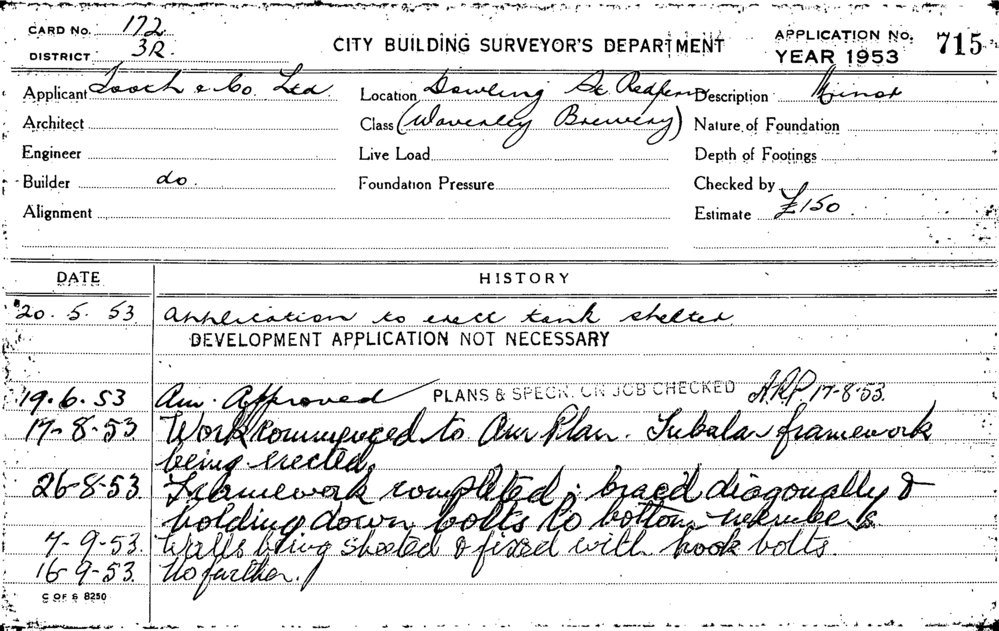 CARD No. 172
DISTRICT 3R
CITY BUILDING SURVEYOR'S DEPARTMENT
APPLICATION No. 715
YEAR 1953
Applicant Tooth & Co. Ltd
Location Dowling St Redfern
Description Minor
Architect
Class (Waverley Brewery)
Nature of Foundation
Engineer
Live Load
Depth of Footings
Builder do.
Foundation Pressure
Checked by
Alignment
Estimate £150
DATE HISTORY
20. 5. 53 Application to erect tank shelter
DEVELOPMENT APPLICATION NOT NECESSARY
19. 6. 53 Am. Approved PLANS & SPECN. ON JOB CHECKED A.R.P. 17-8-53.
17-8-53. Work commenced to Am Plan. Tubalar framework
being erected.
26-8-53. Framework completed; braced diagonally &
holding down bolts to bottom members
7-9-53. Walls being sheeted & fixed with hook bolts.
16-9-53. No further.
C OF S 8250